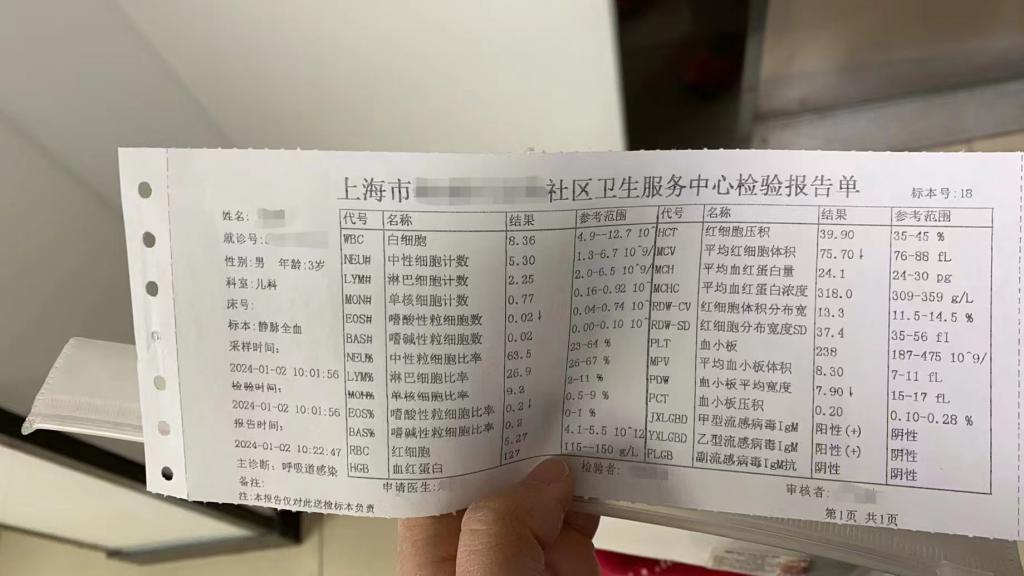 上海市 社区卫生服务中心检验报告单
标本号:18
姓名:
就诊号:
性别:男 年龄:3岁
科室:儿科
床号:
标本:静脉全血
采样时间:
2024-01-02 10:01:56
检验时间:
2024-01-02 10:01:56
报告时间:
2024-01-02 10:22:47
主诊断:呼吸道感染
备注:
注:本报告仅对此送检标本负责
代号 名称 结果 参考范围
WBC 白细胞 8.36 4.9-12.7 10^
NEU# 中性细胞计数 5.30 1.3-6.7 10^9/
LYM# 淋巴细胞计数 2.25 2.0-6.5 10^9/
MON# 单核细胞计数 0.77 0.16-0.92 10^
EOS# 嗜酸性粒细胞数 0.02↓ 0.04-0.74 10^
BAS# 嗜碱性粒细胞数 0.02 0.00-0.10 10^
NEU% 中性细胞比率 63.5 23-64 %
LYM% 淋巴细胞比率 26.9 26-67 %
MON% 单核细胞比率 9.2 2-11 %
EOS% 嗜酸性粒细胞比率 0.2↓ 0.5-9 %
BAS% 嗜碱性粒细胞比率 0.2 0-1 %
RBC 红细胞 5.27 4.1-5.5 10^12
HGB 血红蛋白 127 115--150 g/L
代号 名称 结果 参考范围
HCT 红细胞压积 39.90 35-45 %
MCV 平均红细胞体积 75.70↓ 76-88 fL
MCH 平均血红蛋白量 24.1 24-30 pg
MCHC 平均血红蛋白浓度 318.0 309-359 g/L
RDW-CV 红细胞体积分布宽 13.3 11.5-14.5 %
RDW-SD 红细胞分布宽度SD 37.4 35-56 fl
PLT 血小板 238 187-475 10^9/
MPV 平均血小板体积 8.30 7-11 fL
PDW 血小板平均宽度 7.90↓ 15-17 fL
PCT 血小板压积 0.20 0.10-0.28 %
JXLGBD 甲型流感病毒IgM 阳性(+) 阴性
YXLGBD 乙型流感病毒IgM 阳性(+) 阴性
FLGB 副流感病毒IgM抗 阴性 阴性
申请医生:
检验者:
审核者:
第1页 共1页